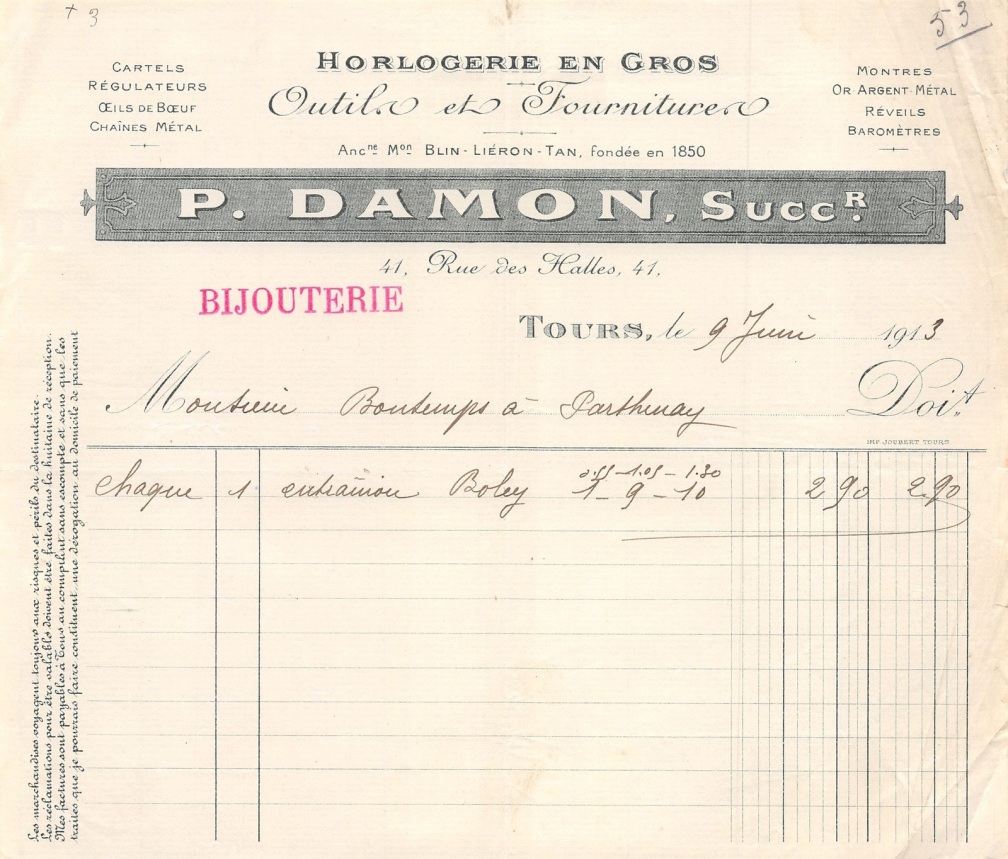 + 3
53
CARTELS
RÉGULATEURS
ŒILS DE BŒUF
CHAÎNES MÉTAL
HORLOGERIE EN GROS
Outils et Fournitures
Ancne Mon BLIN-LIÉRON-TAN, fondée en 1850
MONTRES
OR ARGENT-MÉTAL
RÉVEILS
BAROMÈTRES
P. DAMON, SUCCR.
41, Rue des Halles, 41.
BIJOUTERIE
TOURS, le 9 Juin 1913
Monsieur Bontemps à Parthenay Doit
IMP JOUBERT TOURS
1.05 - 1.30
chaque 1 Boley 1 - 9 - 10 2 90 2.90
Les marchandises voyagent toujours aux risques et périls du destinataire.
Les réclamations pour être valables doivent être faites dans la huitaine de réception.
Mes factures sont payables à Tours au comptant sans escompte et sans que les
traites que je pourrais faire constituent une dérogation au domicile de paiement